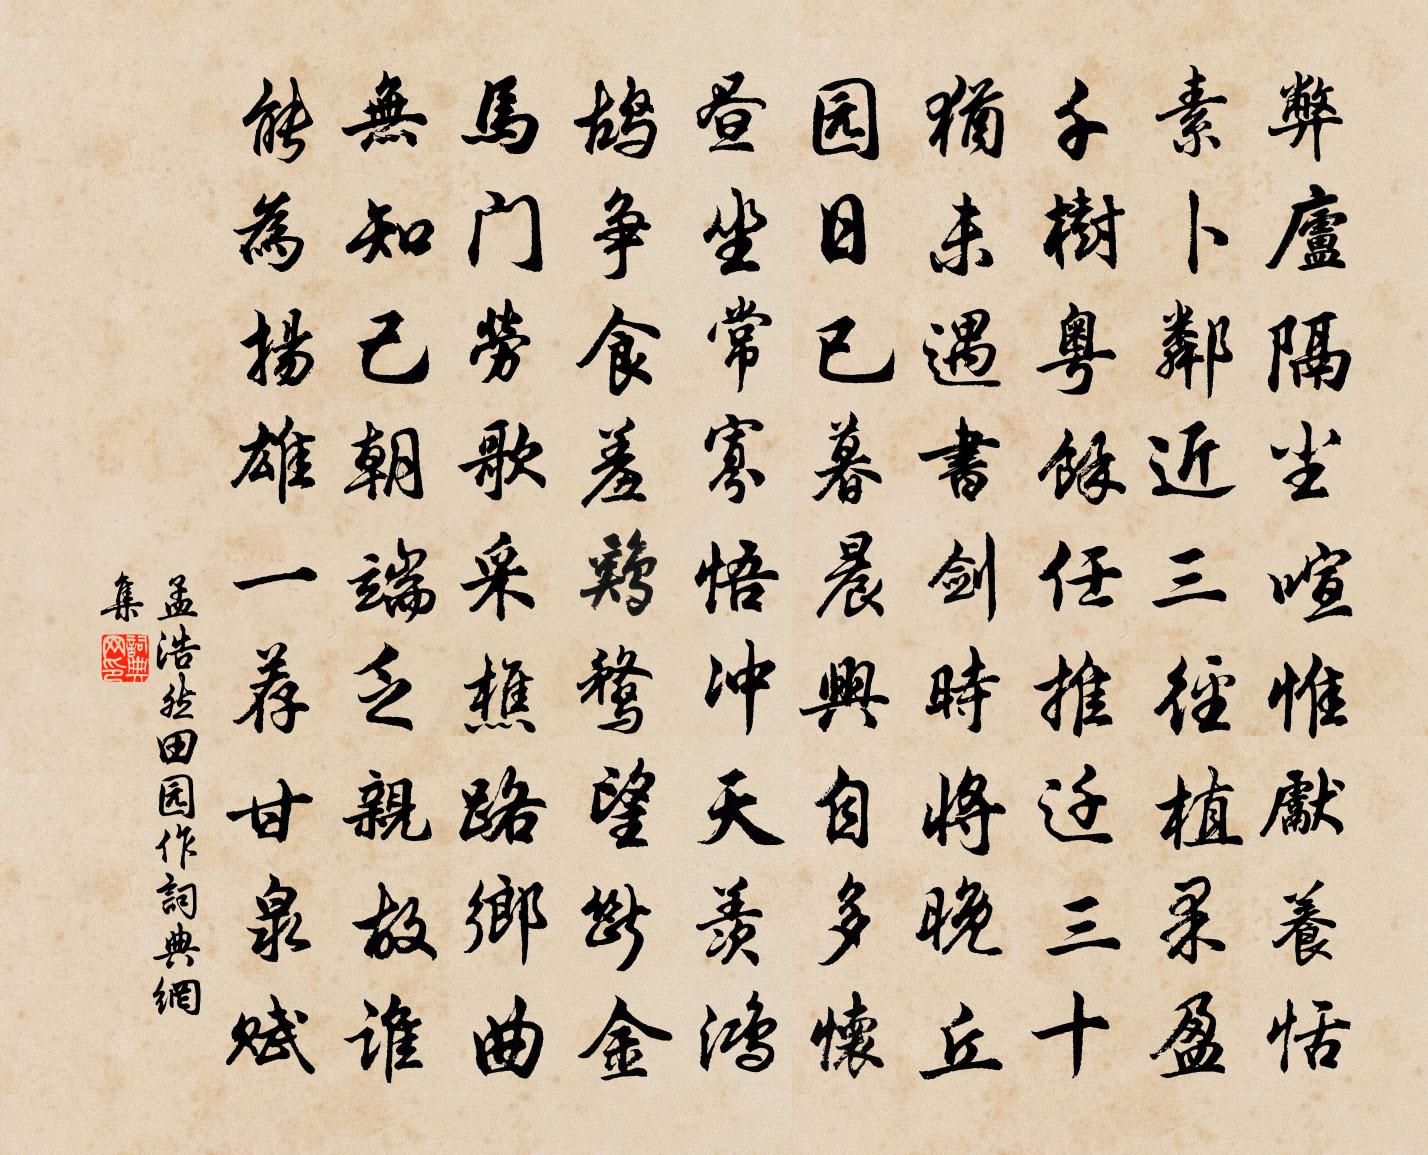 弊廬隔尘喧惟獻養恬
素卜鄰近三徑植果盈
千樹粵餘任推迁三十
猶未遇書剑時將晚丘
园日已暮晨興自多懷
昼坐常寡悟冲天羨鴻
鵠争食羞鷄鶩望斷金
馬门勞歌采樵路鄉曲
無知己朝端乏親故誰
能為揚雄一荐甘泉賦
孟浩然田园作詞典網
集
詞典网印